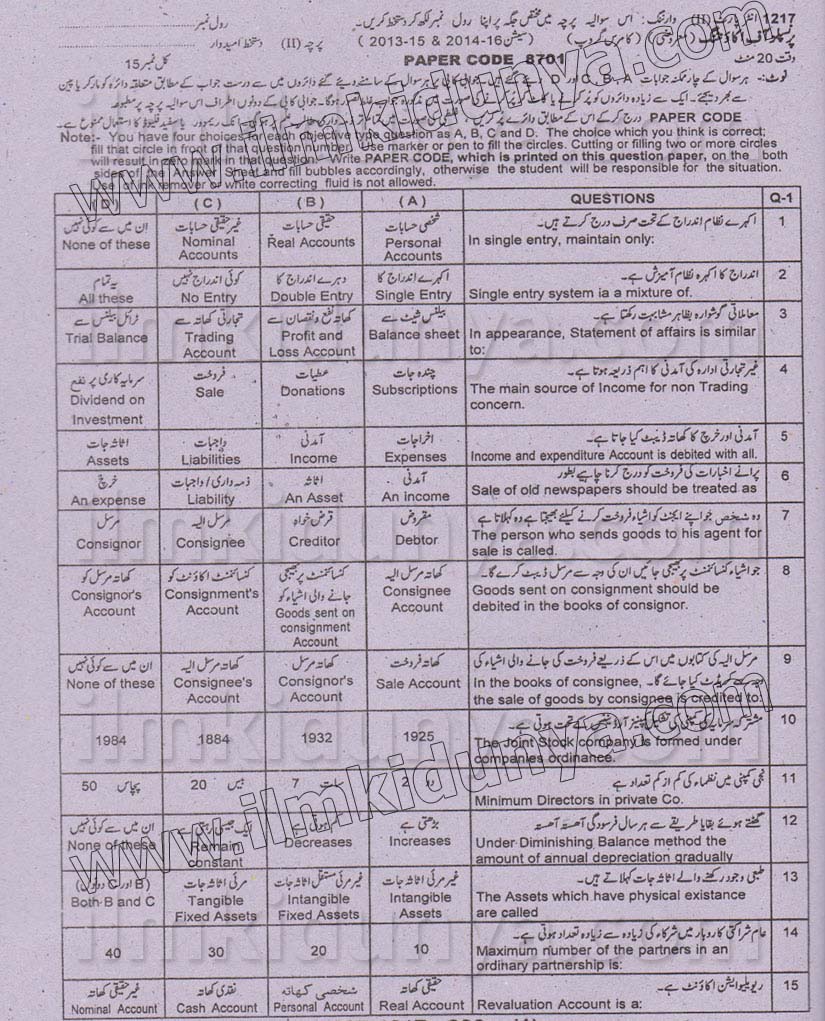 1217 انٹر پارٹ (II) وارننگ: اس سوالیہ پرچہ میں مختص جگہ پر اپنا رول نمبر لکھ کر دستخط کریں۔ رول نمبر
پرنسپلز آف اکاؤنٹنگ (معروضی) (کامرس گروپ) (سیشن 16-2014 & 15-2013) پرچہ (II) دستخط امیدوار
وقت 20 منٹ PAPER CODE 8701 کل نمبر 15
نوٹ:- ہر سوال کے چار ممکنہ جوابات A، B، C اور D دیئے گئے ہیں۔
PAPER CODE درج کرکے اس کے مطابق دائرے پر کریں۔
Note:- You have four choices for each objective type question as A, B, C and D. The choice which you think is correct;
fill that circle in front of that question number. Use marker or pen to fill the circles. Cutting or filling two or more circles
will result in zero mark in that question. Write PAPER CODE, which is printed on this question paper, on the both
sides of the Answer Sheet and fill bubbles accordingly, otherwise the student will be responsible for the situation.
Use of ink remover or white correcting fluid is not allowed.
(D) (C) (B) (A) QUESTIONS Q-1
ان میں سے کوئی نہیں غیر حقیقی حسابات حقیقی حسابات شخصی حسابات اکہرے نظام اندراج کے تحت صرف درج کرتے ہیں۔ 1
None of these Nominal Accounts Real Accounts Personal Accounts In single entry, maintain only:
یہ تمام کوئی اندراج نہیں دہرے اندراج کا اکہرے اندراج کا اندراج کا اکہرہ نظام آمیزش ہے۔ 2
All these No Entry Double Entry Single Entry Single entry system ia a mixture of.
ٹرائل بیلنس سے تجارتی کھاتہ سے کھاتہ نفع و نقصان سے بیلنس شیٹ سے معاملاتی گوشوارہ بظاہر مشابہت رکھتا ہے۔ 3
Trial Balance Trading Account Profit and Loss Account Balance sheet In appearance, Statement of affairs is similar to:
سرمایہ کاری پر نفع فروخت عطیات چندہ جات غیر تجارتی ادارہ کی آمدنی کا اہم ذریعہ ہوتا ہے۔ 4
Dividend on Investment Sale Donations Subscriptions The main source of Income for non Trading concern.
اثاثہ جات واجبات آمدنی اخراجات آمدنی اور خرچ کا کھاتہ ڈیبٹ کیا جاتا ہے۔ 5
Assets Liabilities Income Expenses Income and expenditure Account is debited with all.
خرچ ذمہ داری/واجبات اثاثہ آمدنی پرانے اخبارات کی فروخت کو درج کرنا چاہیے بطور 6
An expense Liability An Asset An income Sale of old newspapers should be treated as
مرسل مرسل الیہ قرض خواہ مقروض وہ شخص جو اپنے ایجنٹ کو اشیاء فروخت کرنے کیلئے بھیجتا ہے وہ کہلاتا ہے 7
Consignor Consignee Creditor Debtor The person who sends goods to his agent for sale is called.
کھاتہ مرسل کو کنسائنمنٹ اکاؤنٹ کو کنسائنمنٹ پر بھیجی جانے والی اشیاء کو کھاتہ مرسل الیہ جو اشیاء کنسائنمنٹ پر بھیجی جائیں ان کی وجہ سے مرسل ڈیبٹ کرے گا۔ 8
Consignor's Account Consignment's Account Goods sent on consignment Account Consignee Account Goods sent on consignment should be debited in the books of consignor.
ان میں سے کوئی نہیں کھاتہ مرسل الیہ کھاتہ مرسل کھاتہ فروخت مرسل الیہ کی کتابوں میں اس کے ذریعے فروخت کی جانے والی اشیاء کی کریڈٹ کیا جائے گا۔ 9
None of these Consignee's Account Consignor's Account Sale Account In the books of consignee, the sale of goods by consignee is credited to:
مشترکہ 10
1984 1884 1932 1925 The Joint Stock company is formed under companies ordinance.
پچاس 50 بیس 20 سات 7 دو 2 نجی کمپنی میں نظماء کی کم از کم تعداد ہے 11
Minimum Directors in private Co.
ان میں سے کوئی نہیں ایک جیسی رہتی ہے بڑھتی ہے گھٹتے ہوئے بقایا طریقے سے ہر سال فرسودگی آہستہ آہستہ 12
None of these Remain constant Decreases Increases Under Diminishing Balance method the amount of annual depreciation gradually
(B اور C دونوں) مرئی اثاثہ جات غیر مرئی مستقل اثاثہ جات غیر مرئی اثاثہ جات طبعی وجود رکھنے والے اثاثہ جات کہلاتے ہیں۔ 13
Both B and C Tangible Fixed Assets Intangible Fixed Assets Intangible Assets The Assets which have physical existance are called
عام شراکتی کاروبار میں شرکاء کی زیادہ سے زیادہ تعداد ہوتی ہے۔ 14
40 30 20 10 Maximum number of the partners in an ordinary partnership is:
غیر حقیقی کھاتہ نقدی کھاتہ شخصی کھاتہ حقیقی کھاتہ ریویلیوایشن اکاؤنٹ ہے۔ 15
Nominal Account Cash Account Personal Account Real Account Revaluation Account is a:
www.ilmkidunya.com
www.ilmkidunya.com